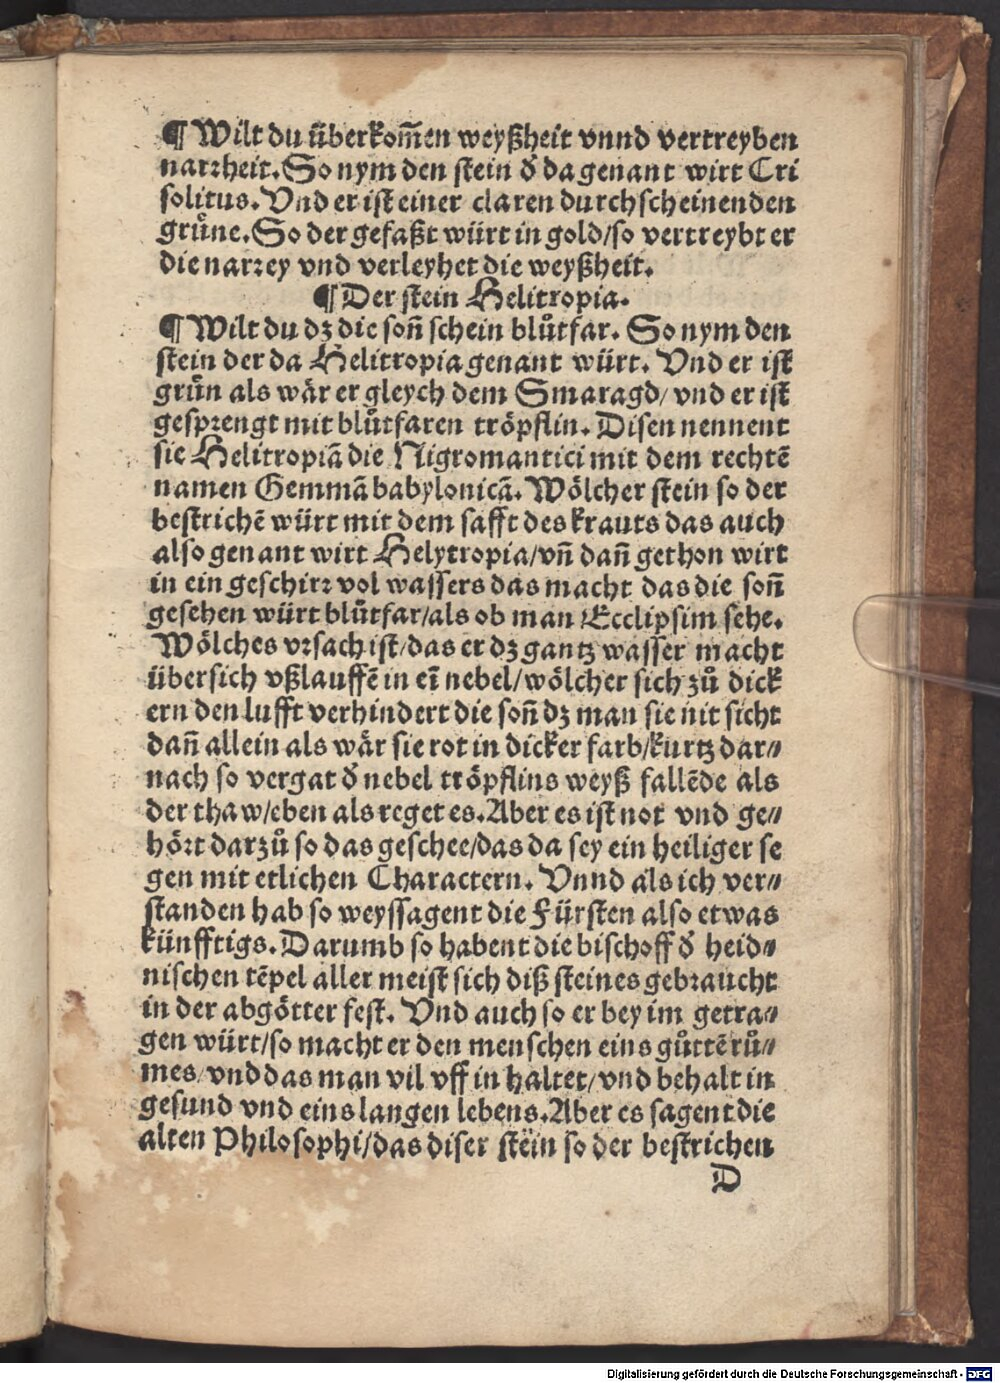 ¶ Wilt du überkom̄en weyßheit vnnd vertreyben
narꝛheit. So nym den stein d̄ da genant wirt Cri
solitus. Vnd er ist einer claren durchscheinenden
gruͤne. So der gefaßt würt in gold/so vertreybt er
die narꝛey vnd verleyhet die weyßheit.
¶ Der stein Helitropia.
¶ Wilt du dz die son̄ schein bluͦtfar. So nym den
stein der da Helitropia genant würt. Vnd er ist
gruͤn als wär er gleych dem Smaragd/ vnd er ist
gespꝛengt mit bluͦtfaren tröpflin. Disen nennent
sie Helitropiā die Nigromantici mit dem rechtē
namen Gemmā babylonicā. Wölcher stein so der
bestrichē würt mit dem safft des krauts das auch
also genant wirt Helytropia/vn̄ dan̄ gethon wirt
in ein geschirꝛ vol wassers das macht das die son̄
gesehen würt bluͦtfar/als ob man Ecclipsim sehe.
Wölches vꝛsach ist/das er dz gantz wasser macht
übersich vßlauffē in eī nebel/wölcher sich zuͦ dick
ern den lufft verhindert die son̄ dz man sie nit sicht
dan̄ allein als wär sie rot in dicker farb/kurtz dar⸗
nach so vergat d̄ nebel tröpflins weyß fallēde als
der thaw/eben als reget es. Aber es ist not vnd ge⸗
höꝛt darzuͦ so das geschee/das da sey ein heiliger se
gen mit etlichen Charactern. Vnnd als ich ver⸗
standen hab so weyssagent die Fürsten also etwas
künfftigs. Darumb so habent die bischoff d̄ heid⸗
nischen tēpel aller meist sich diß steines gebꝛaucht
in der abgötter fest. Vnd auch so er bey im getra⸗
gen würt/so macht er den menschen eins guͦttē ruͦ⸗
mes/vnd das man vil vff in haltet/vnd behalt in
gesund vnd eins langen lebens. Aber es sagent die
alten Philosophi/das diser stein so der bestrichen
D
Digitalisierung gefördert durch die Deutsche Forschungsgemeinschaft - DFG